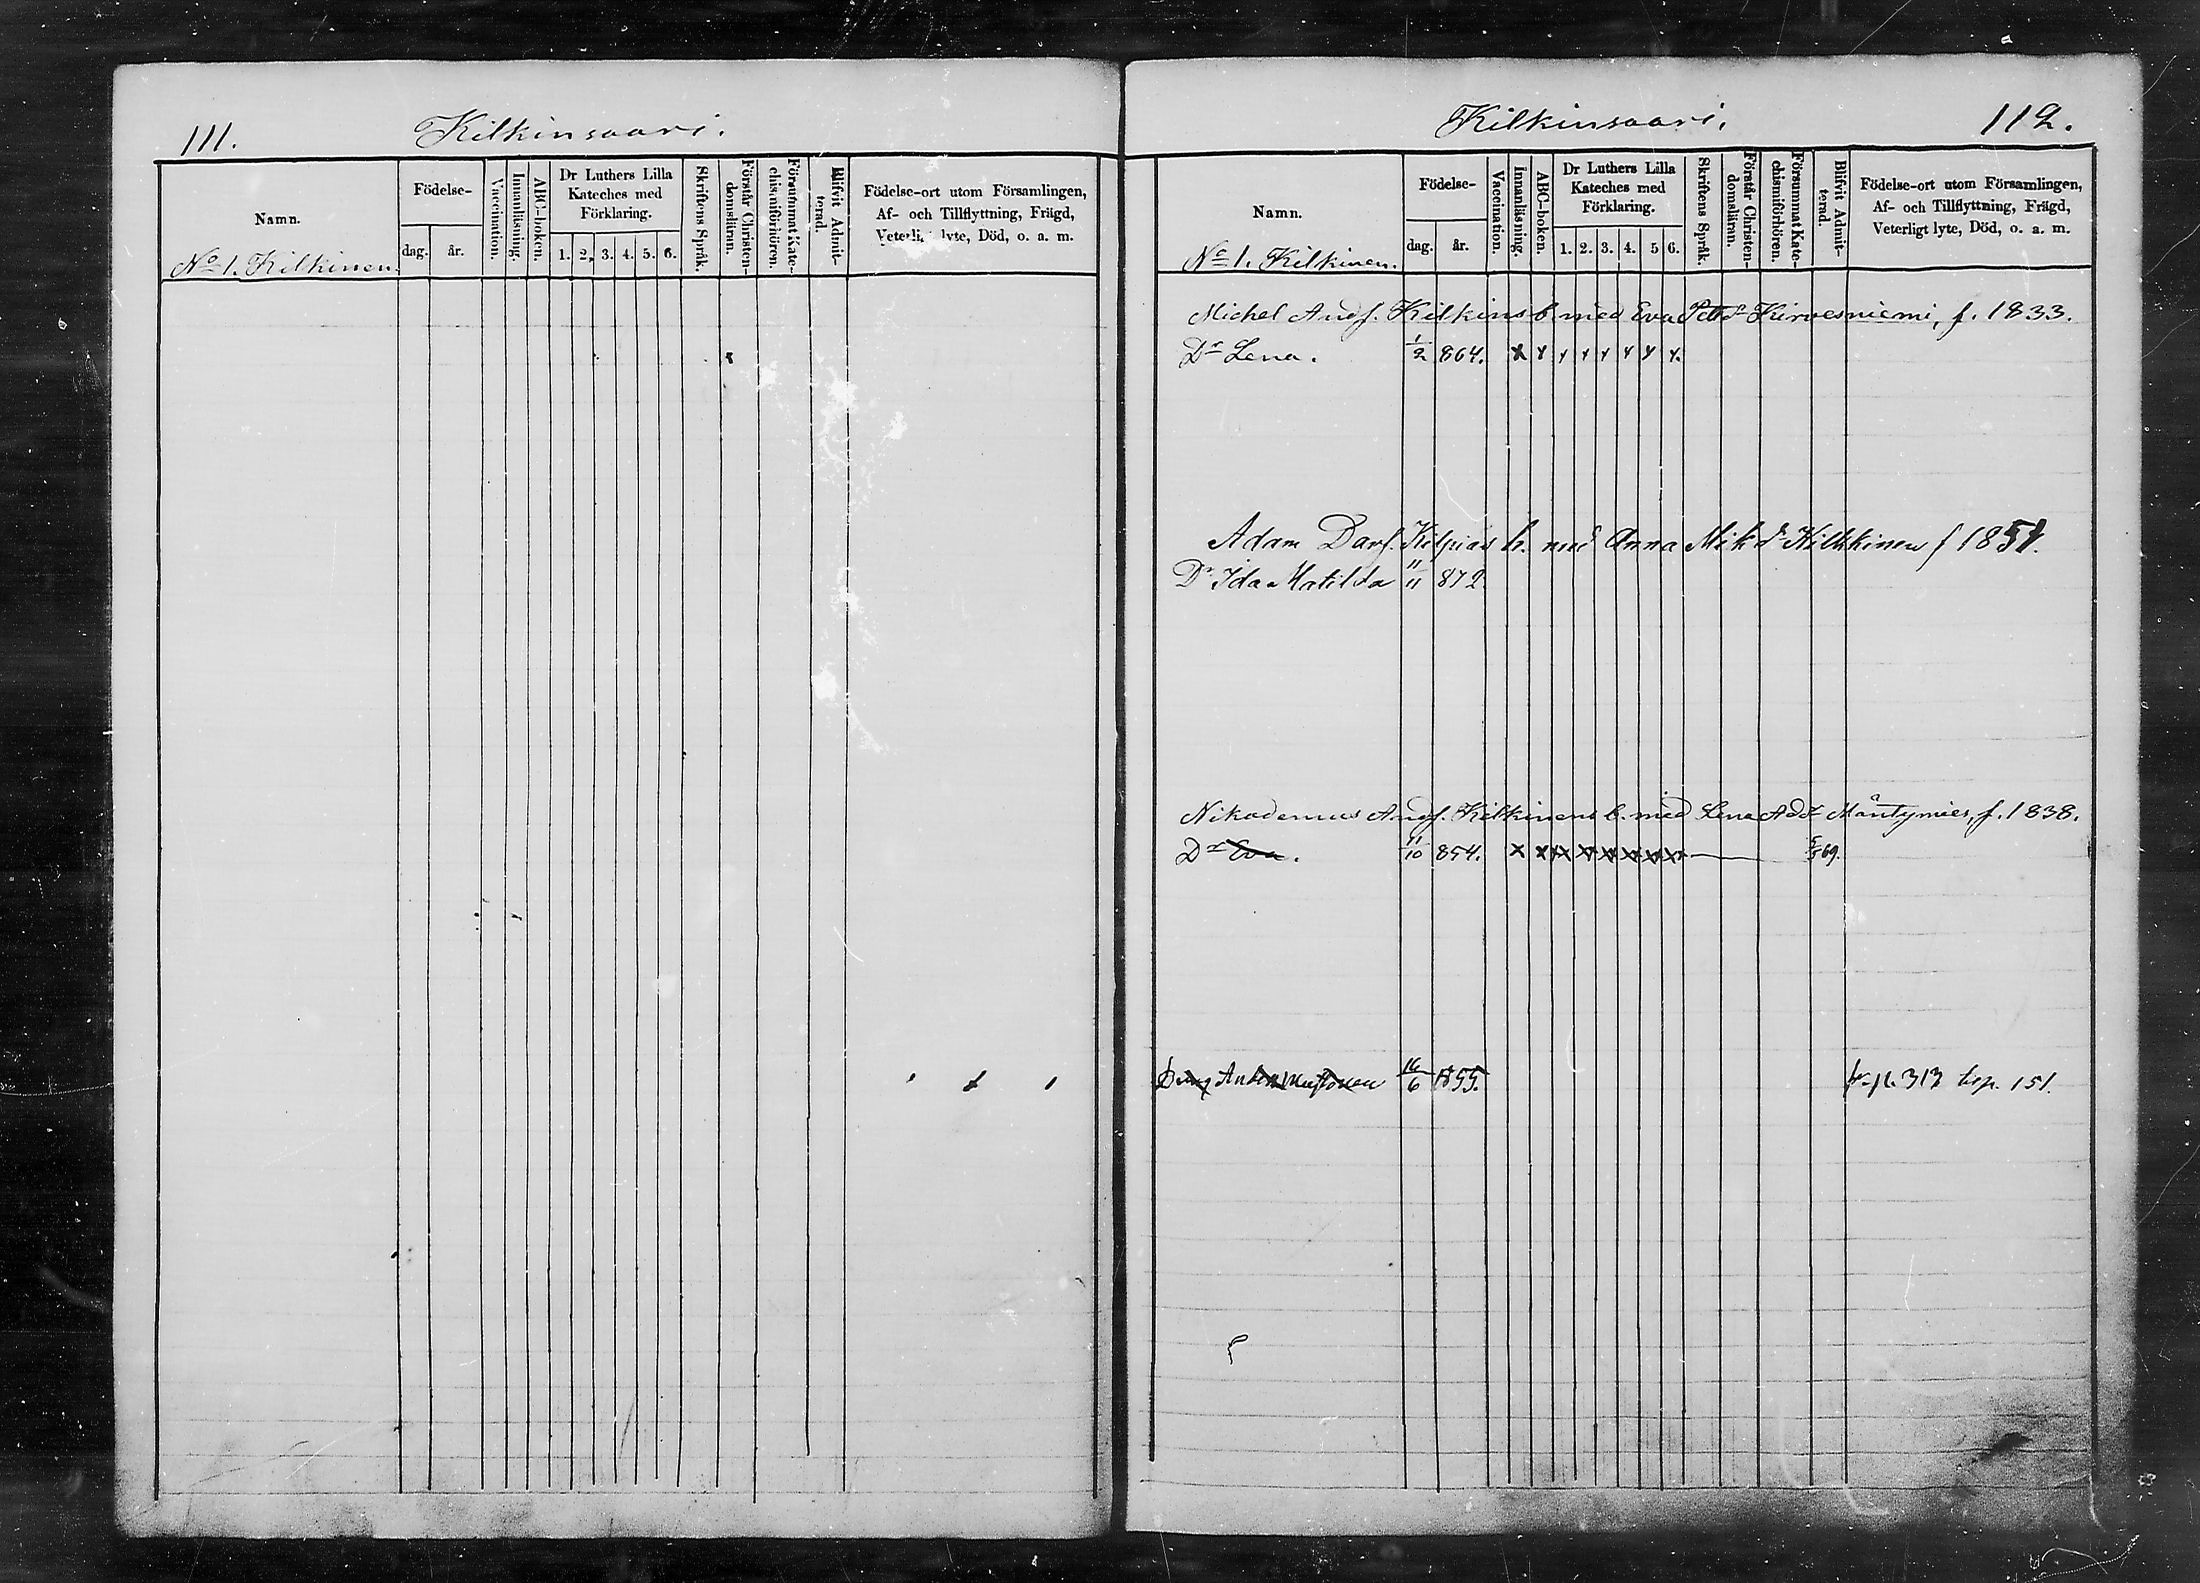 111.
Kilkinsaari.
Namn.
Födelse-
dag. år.
Vaccination.
Innanläsning.
ABC-boken.
Dr Luthers Lilla
Kateches med
Förklaring.
1. 2. 3. 4. 5. 6.
Skriftens Språk.
Förstår Christen-
domsläran.
Försummat Kate-
chismiförhören.
Blifvit Admit-
terad.
Födelse-ort utom Församlingen,
Af- och Tillflyttning, Frägd,
lyte, Död, o. a. m.
No 1. Kilkinen.
Kilkinsaari.
112.
Namn.
Födelse-
dag. år.
Vaccination.
Innanläsning.
ABC-boken.
Dr Luthers Lilla
Kateches med
Förklaring.
1. 2. 3. 4. 5 6.
Skriftens Språk.
Förstår Christen-
domsläran.
Försummat Kate-
chismiförhören.
Blifvit Admit-
terad.
Födelse-ort utom Församlingen,
Af- och Tillflyttning, Frägd,
Veterligt lyte, Död, o. a. m.
No 1. Kilkinen.
Michel Andf. Kilkins b. med Eva Petdr Kirvesniemi, f. 1833.
Dr Lena. 1/2 864. x x x x x x x x.
Adam Davf. h. med Anna Mik dr Kilkkinen f 1851.
Dr Ida Matilda 11/11 872.
Nikodemus Andf. Kilkinens b. med Lena Addr Mäntymies, f. 1838.
Dr Eva. 11/10 854. x x x x x x x x 69.
Anders 16/6 1855. fr. p. 313 151.